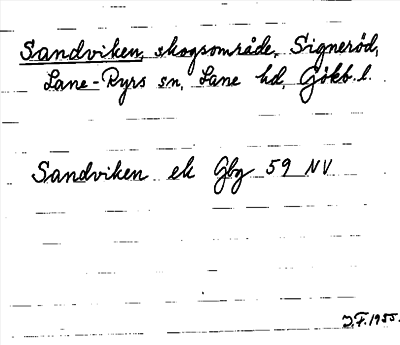 Sandviken, skogsområde, Signeröd,
Lane-Ryrs sn, Lane hd, Gökb. l.
Sandviken ek Gbg 59 NV
J.F. 1955.